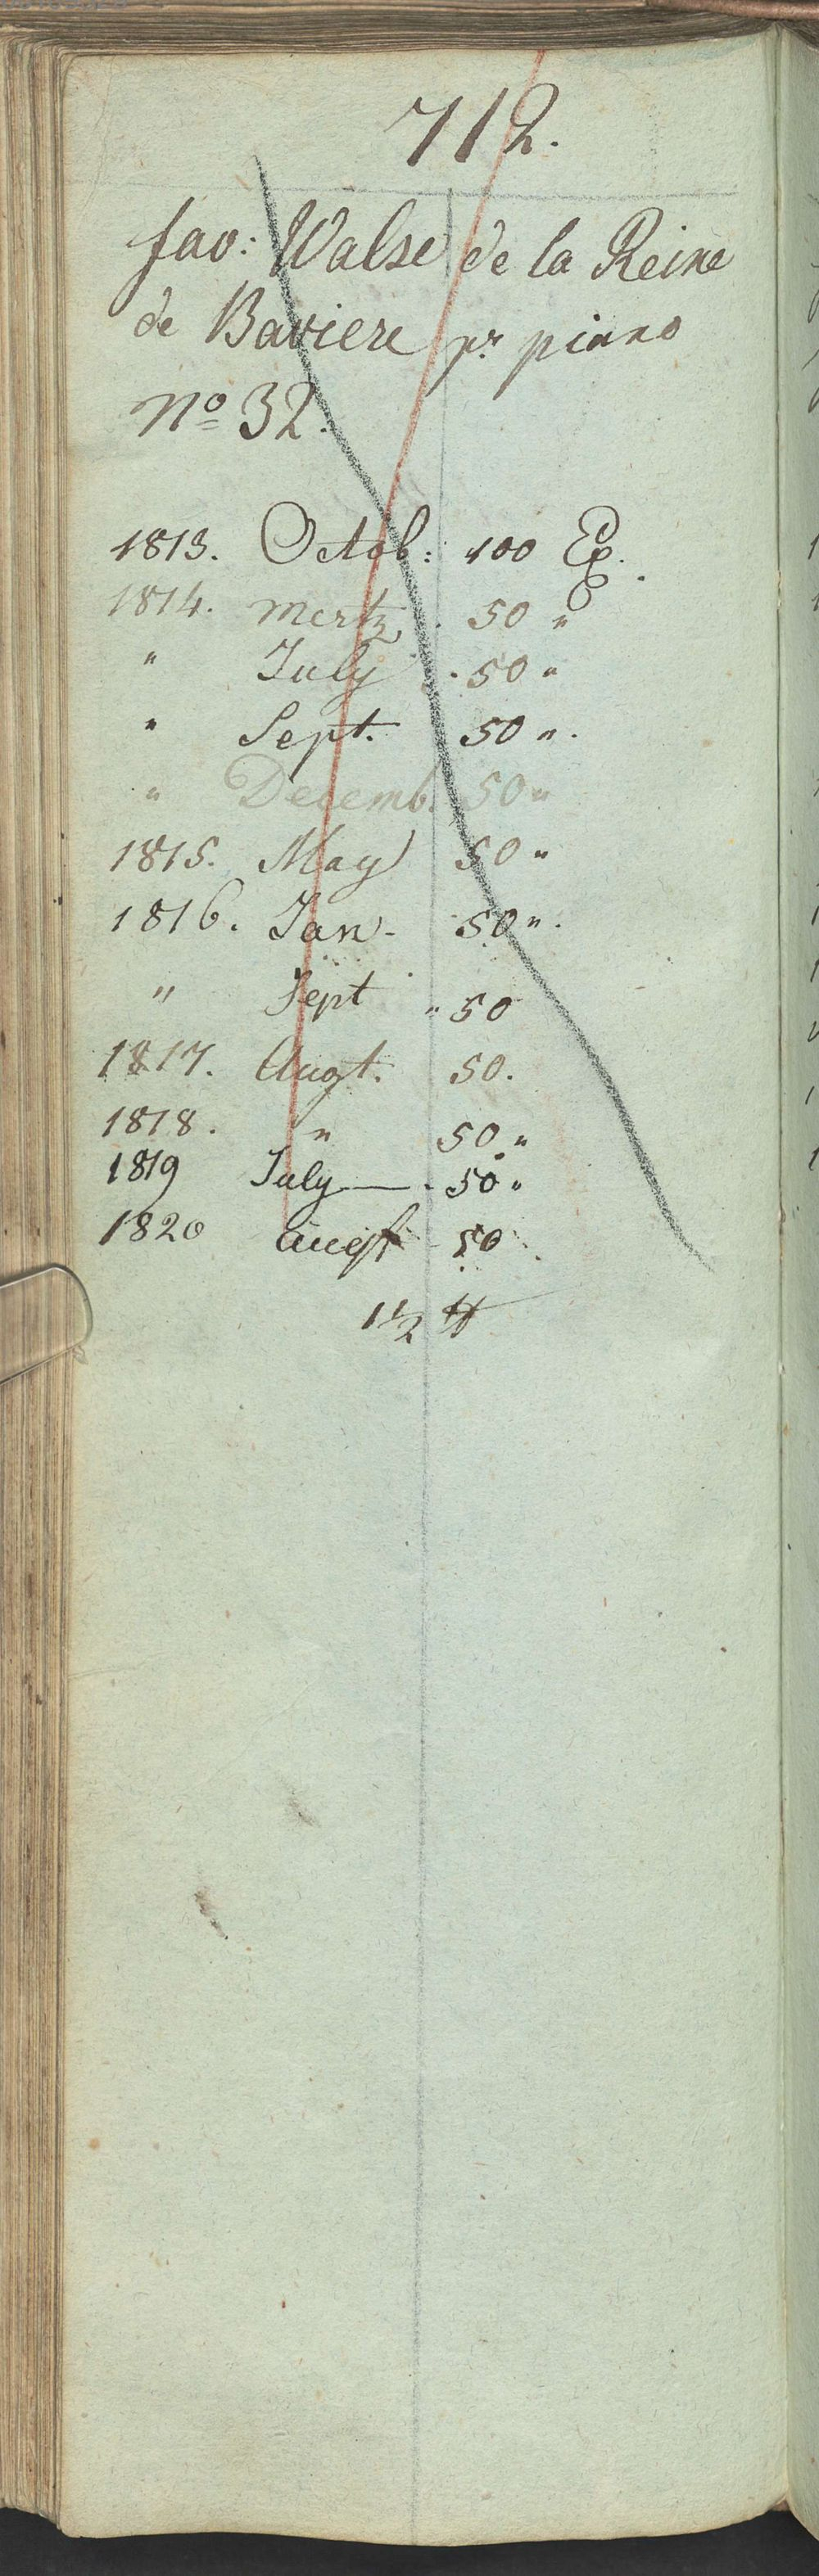 712.
fav: Walse de la Reine
de Baviere pr piano
No 32.
1813. Octob: 100 Ex.
1814. Mertz. 50 "
" July . 50 "
" Sept. 50 ".
" Decemb. 50 "
1815. May 50 "
1816. Jan. 50 ".
" Sept " 50
1817. Augt. 50.
1818. " 50. "
1819 July — . 50 "
1820 augst 50
1 1/2